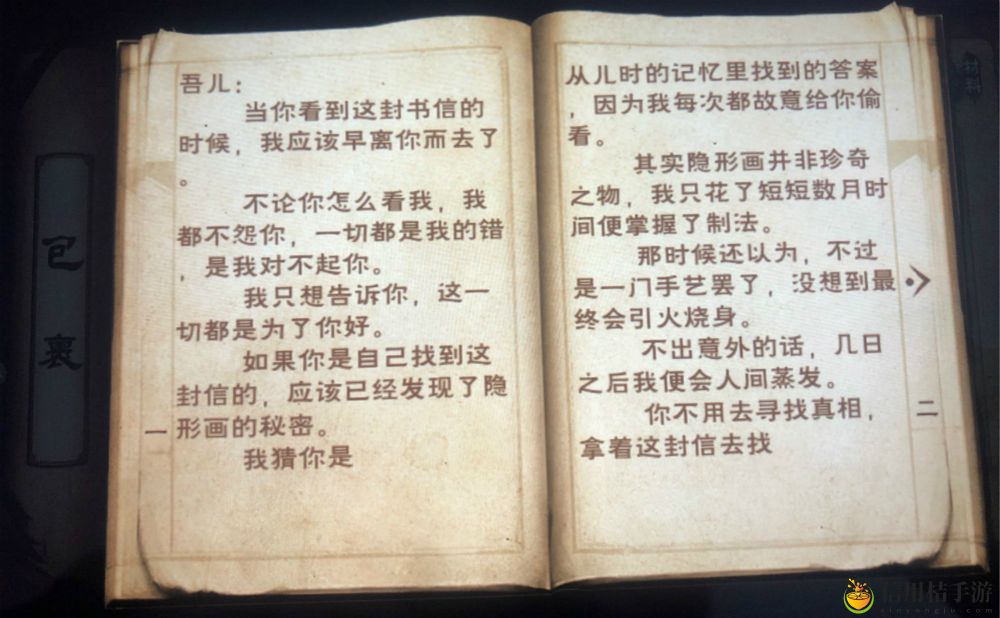 吾儿：
当你看到这封书信的
时候，我应该早离你而去了
。
不论你怎么看我，我
都不怨你，一切都是我的错
，是我对不起你。
我只想告诉你，这一
切都是为了你好。
如果你是自己找到这
封信的，应该已经发现了隐
形画的秘密。
我猜你是
一
从儿时的记忆里找到的答案
，因为我每次都故意给你偷
看。
其实隐形画并非珍奇
之物，我只花了短短数月时
间便掌握了制法。
那时候还以为，不过
是一门手艺罢了，没想到最
终会引火烧身。
不出意外的话，几日
之后我便会人间蒸发。
你不用去寻找真相，
拿着这封信去找
二
包裹
材料
信用桔手游
xinyongju.com